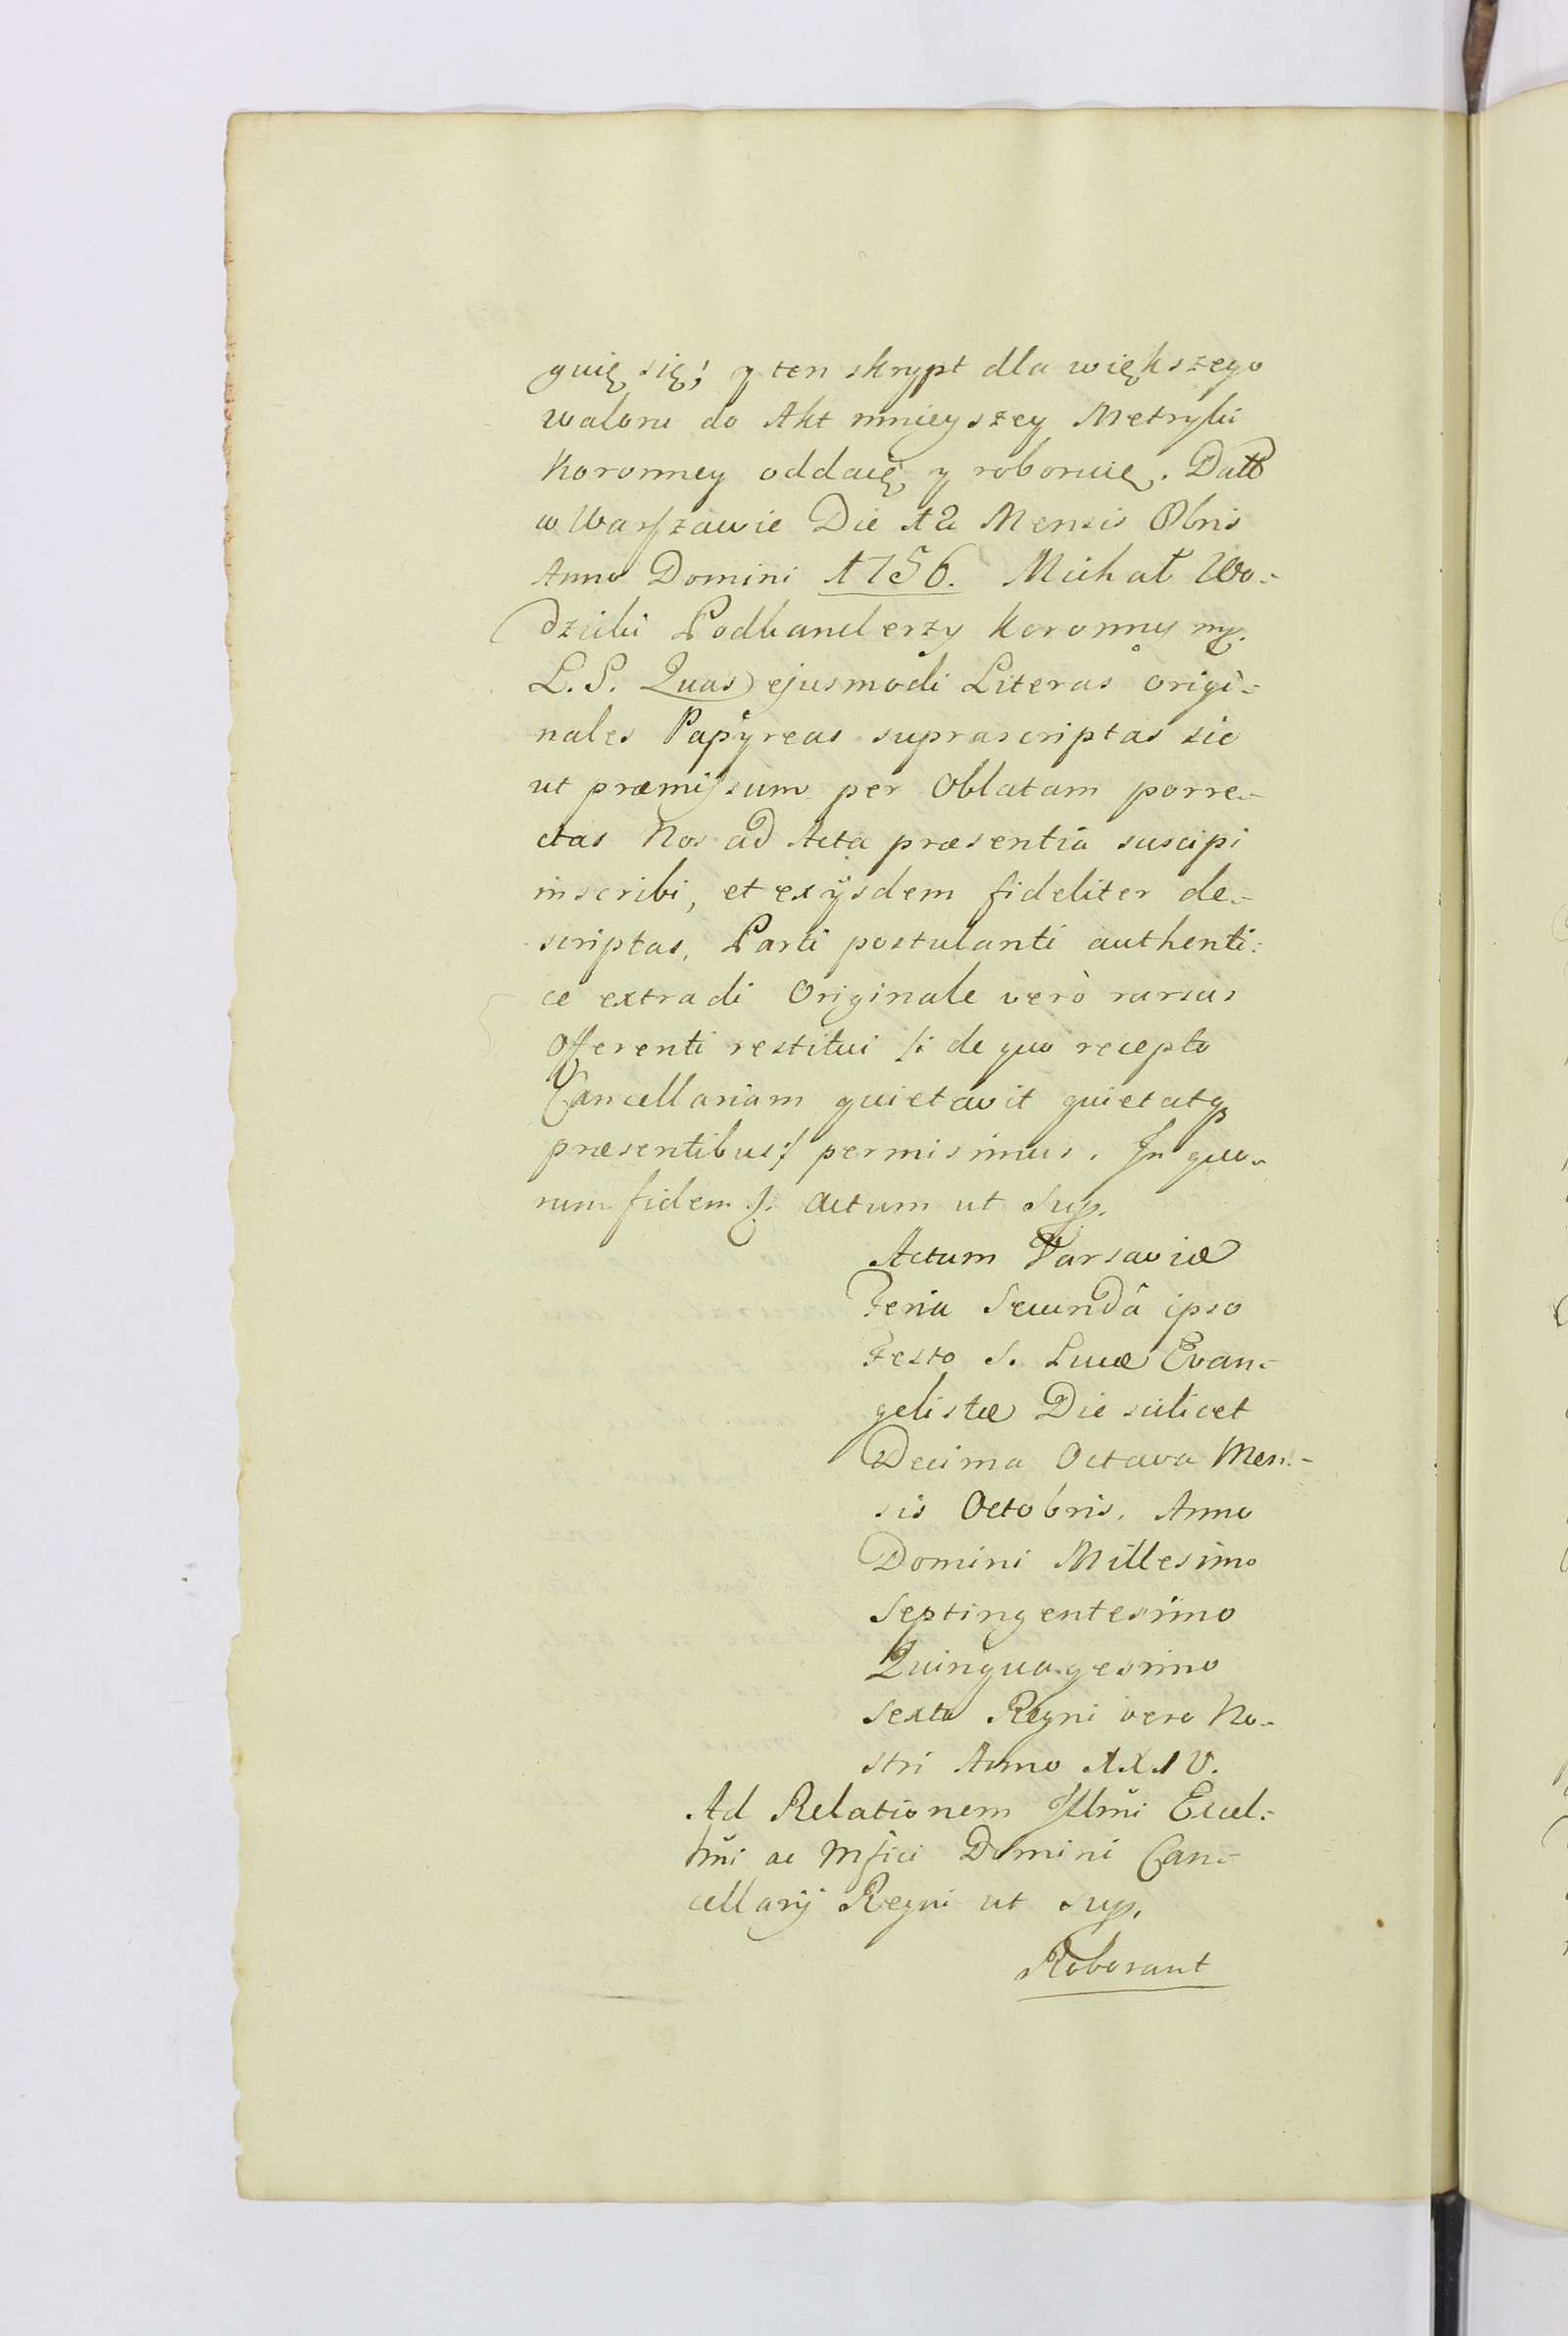 guię się; y ten skrypt dla większego
waloru do Akt mnieyszey Metryki
Koronney oddaię y roboruię. Datt
w Warszawie Die 12 Mensis 8bris
Anno Domini 1756. Michał Wo-
dzicki Podkanclerzy Koronny mp.
L.S. Quas ejusmodi Literas origi-
nales Papyreas suprascriptas sic
ut præmissum per Oblatam porre-
ctas Nos ad Acta præsentia suscipi
inscribi, et ex ijsdem fideliter de-
scriptas, Parti postulanti authenti-
ce extradi Originale verò rursus
Offerenti restitui /: de quo recepto
Cancellariam quietavit quietatq
præsentibus :/ permisimus. In quo-
rum fidem &. Actum ut Sup.
Actum Varsaviæ
Feria Secundâ ipso
Festo S. Lucæ Evan-
gelistæ Die scilicet
Decima Octava Men-
sis Octobris. Anno
Domini Millesimo
Septingentesimo
Quinquagesimo
Sexto Regni vero No-
stri Anno XXIV.
Ad Relationem Illmi Excel-
lmi ac Mfici Domini Can-
cellarij Regni ut sup.
Roborant